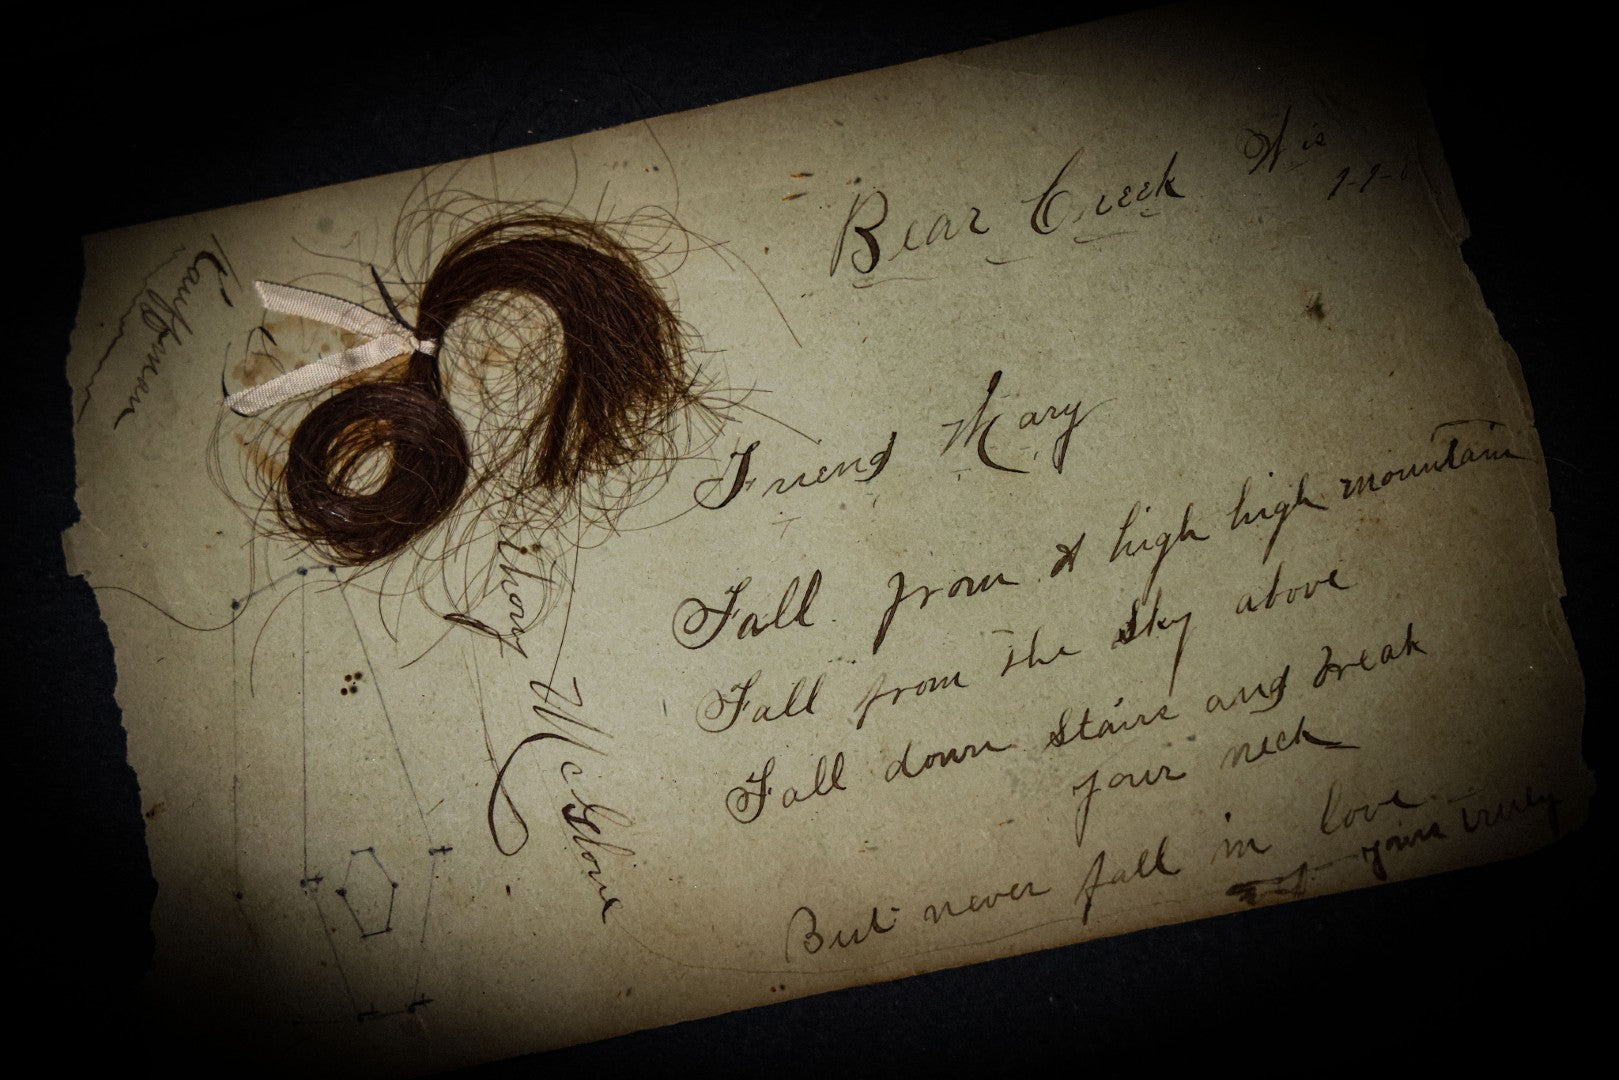 Bear Creek Wis
Friend Mary
Fall from A high high mountain
Fall from the sky above
Fall down stairs and break
your neck
But never fall in love
yours truly
McGlone
Kauffman